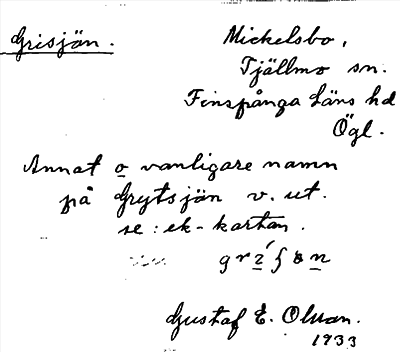 Grisjön.
Mickelsbo,
Tjällmo sn.
Finspånga Läns hd
Ögl.
Annat o vanligare namn
på Grytsjön v. ut.
se: ek-kartan.
Gustaf E. Olsson.
1933